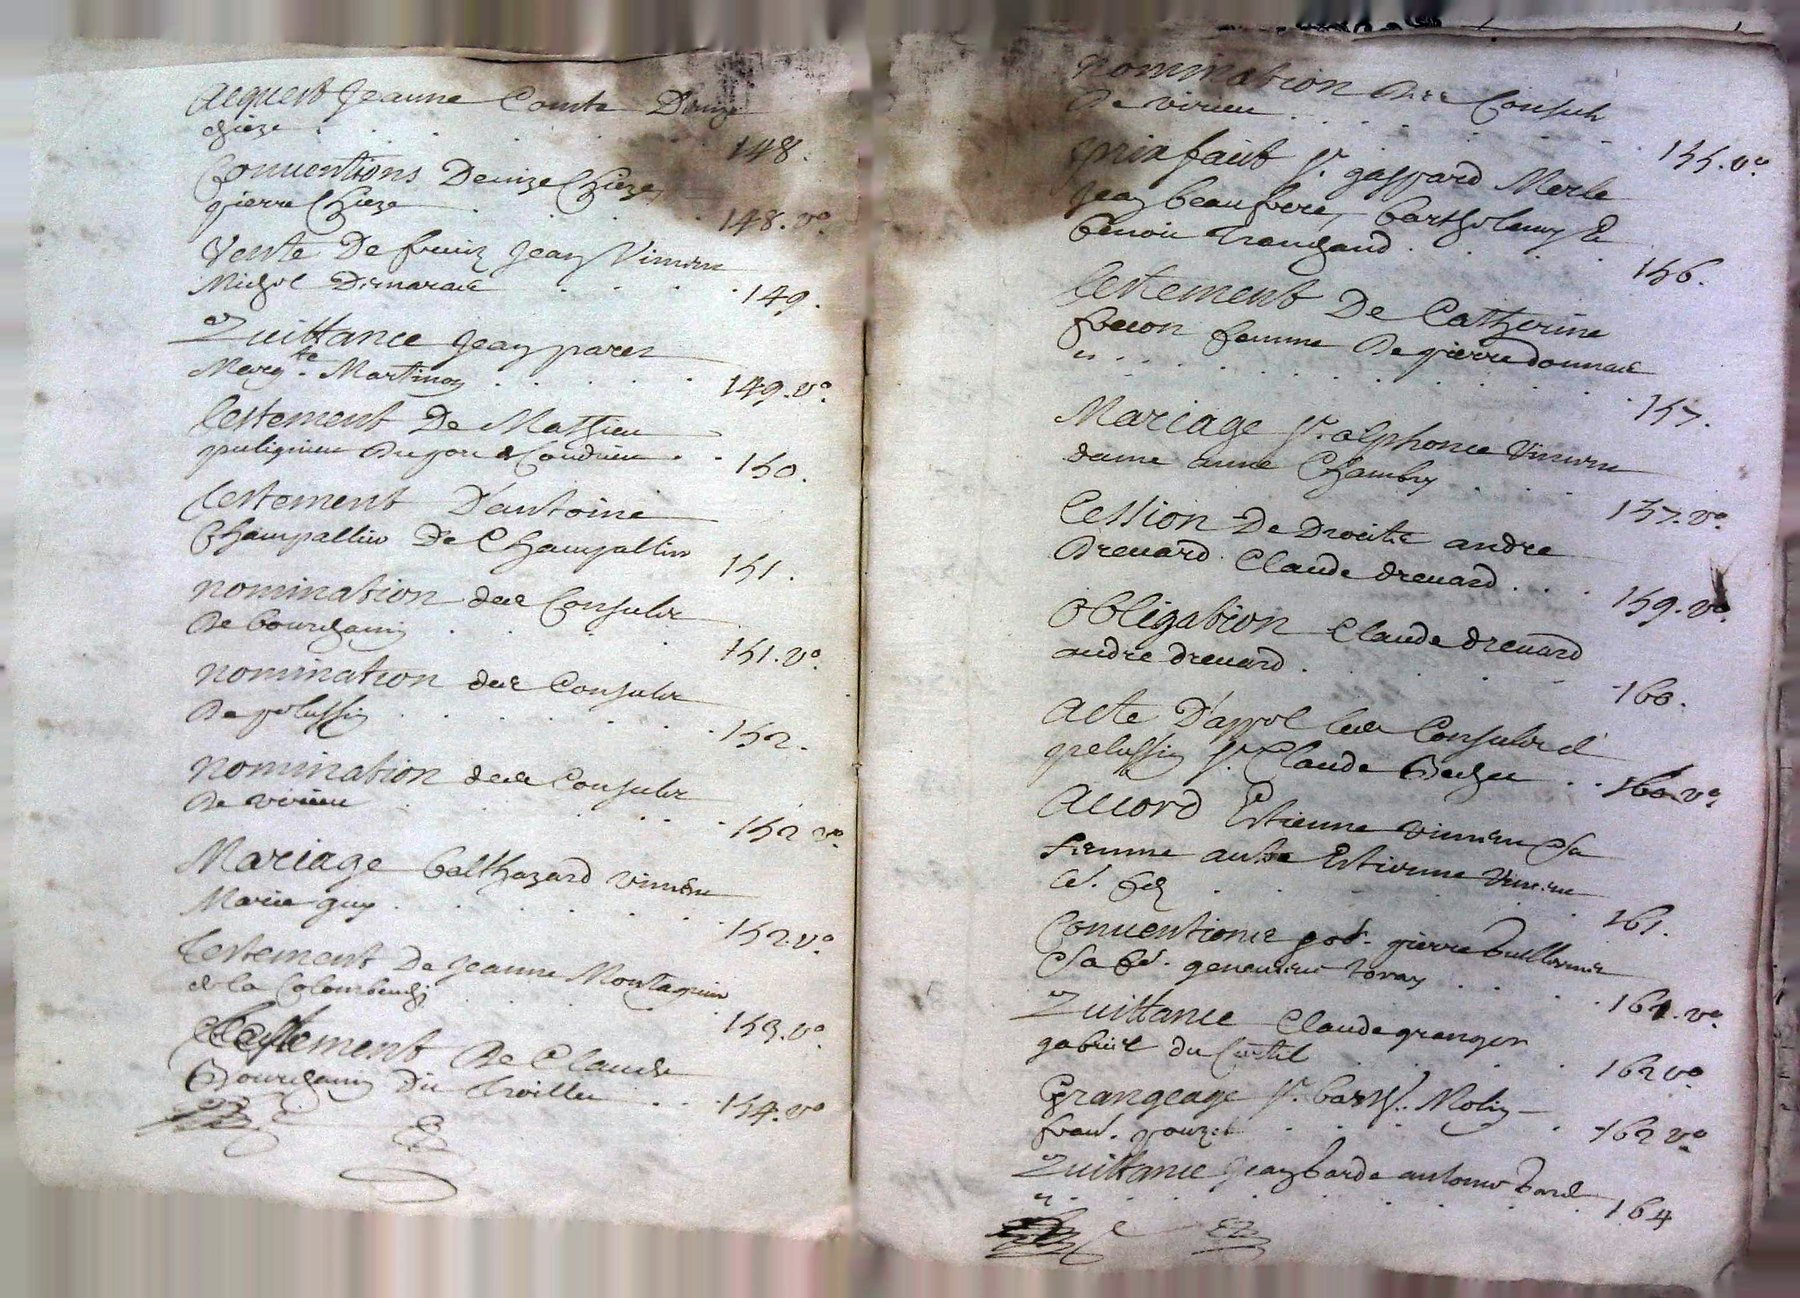 Acquest Jeanne Comte Denize
Chieze . . . . . . 148.
Conventions Denize Chieze
pierre Chieze . . . . . 148. vo.
Vente De fruiz Jean Vimrn
Michel Dimarais . . . . 149.
Quittance Jean parez
Margte. Martinon . . . . . 149. vo.
Testement De Mathieu
puligneu Du port de Condrieu . . 150.
Testement D'antoine
Champallin De Champallin 151.
nomination des Consulz
De bourchany . . . . . 151. vo.
nomination des Consulz
De pelussin . . . . . . 152.
nomination des Consulz
De virieu . . . . . 152 vo.
Mariage balthazard vimrn
Marie guy . . . . . . 152. vo.
Testement De Jeanne Montagnier
de la Colombenche 153. vo.
Testement De Claude
Bourchany Du Treillu . . . 154. vo
nomination des Consulz
De virieu . . . . . . 155. vo.
prix fait sr. gaspard Merle
Jean beaufrere, barthelemy Et
benoit Trenchand . . . . . 156.
Testement De Catherine
frecon femme De pierre donnais
. . . . . . . . 157.
Mariage sr. alphonce Vimrn
dame anne Chambry . . 157. vo.
Cession De Droits andre
Drevard Claude drevard . . . 159. vo.
Obligation Claude Drevard
andre drevard . . . . . 160.
Acte D'appel les Consulz d
pelussin sr. Claude Bechu . . 160. vo.
Accord Estienne vimrn Sa
femme autre Estienne Vimrn
. . . . . . . 161.
Conventions pierre Guillermier
Sa genevieve . . . 161. vo.
Quittance Claude granger
gabriel du Curtil . . . . . 162 vo.
Grangeage sr. barth. Molin
. . . . . . 162 vo.
Quittance Jean barde antoine bard
. . . . . . . . 164